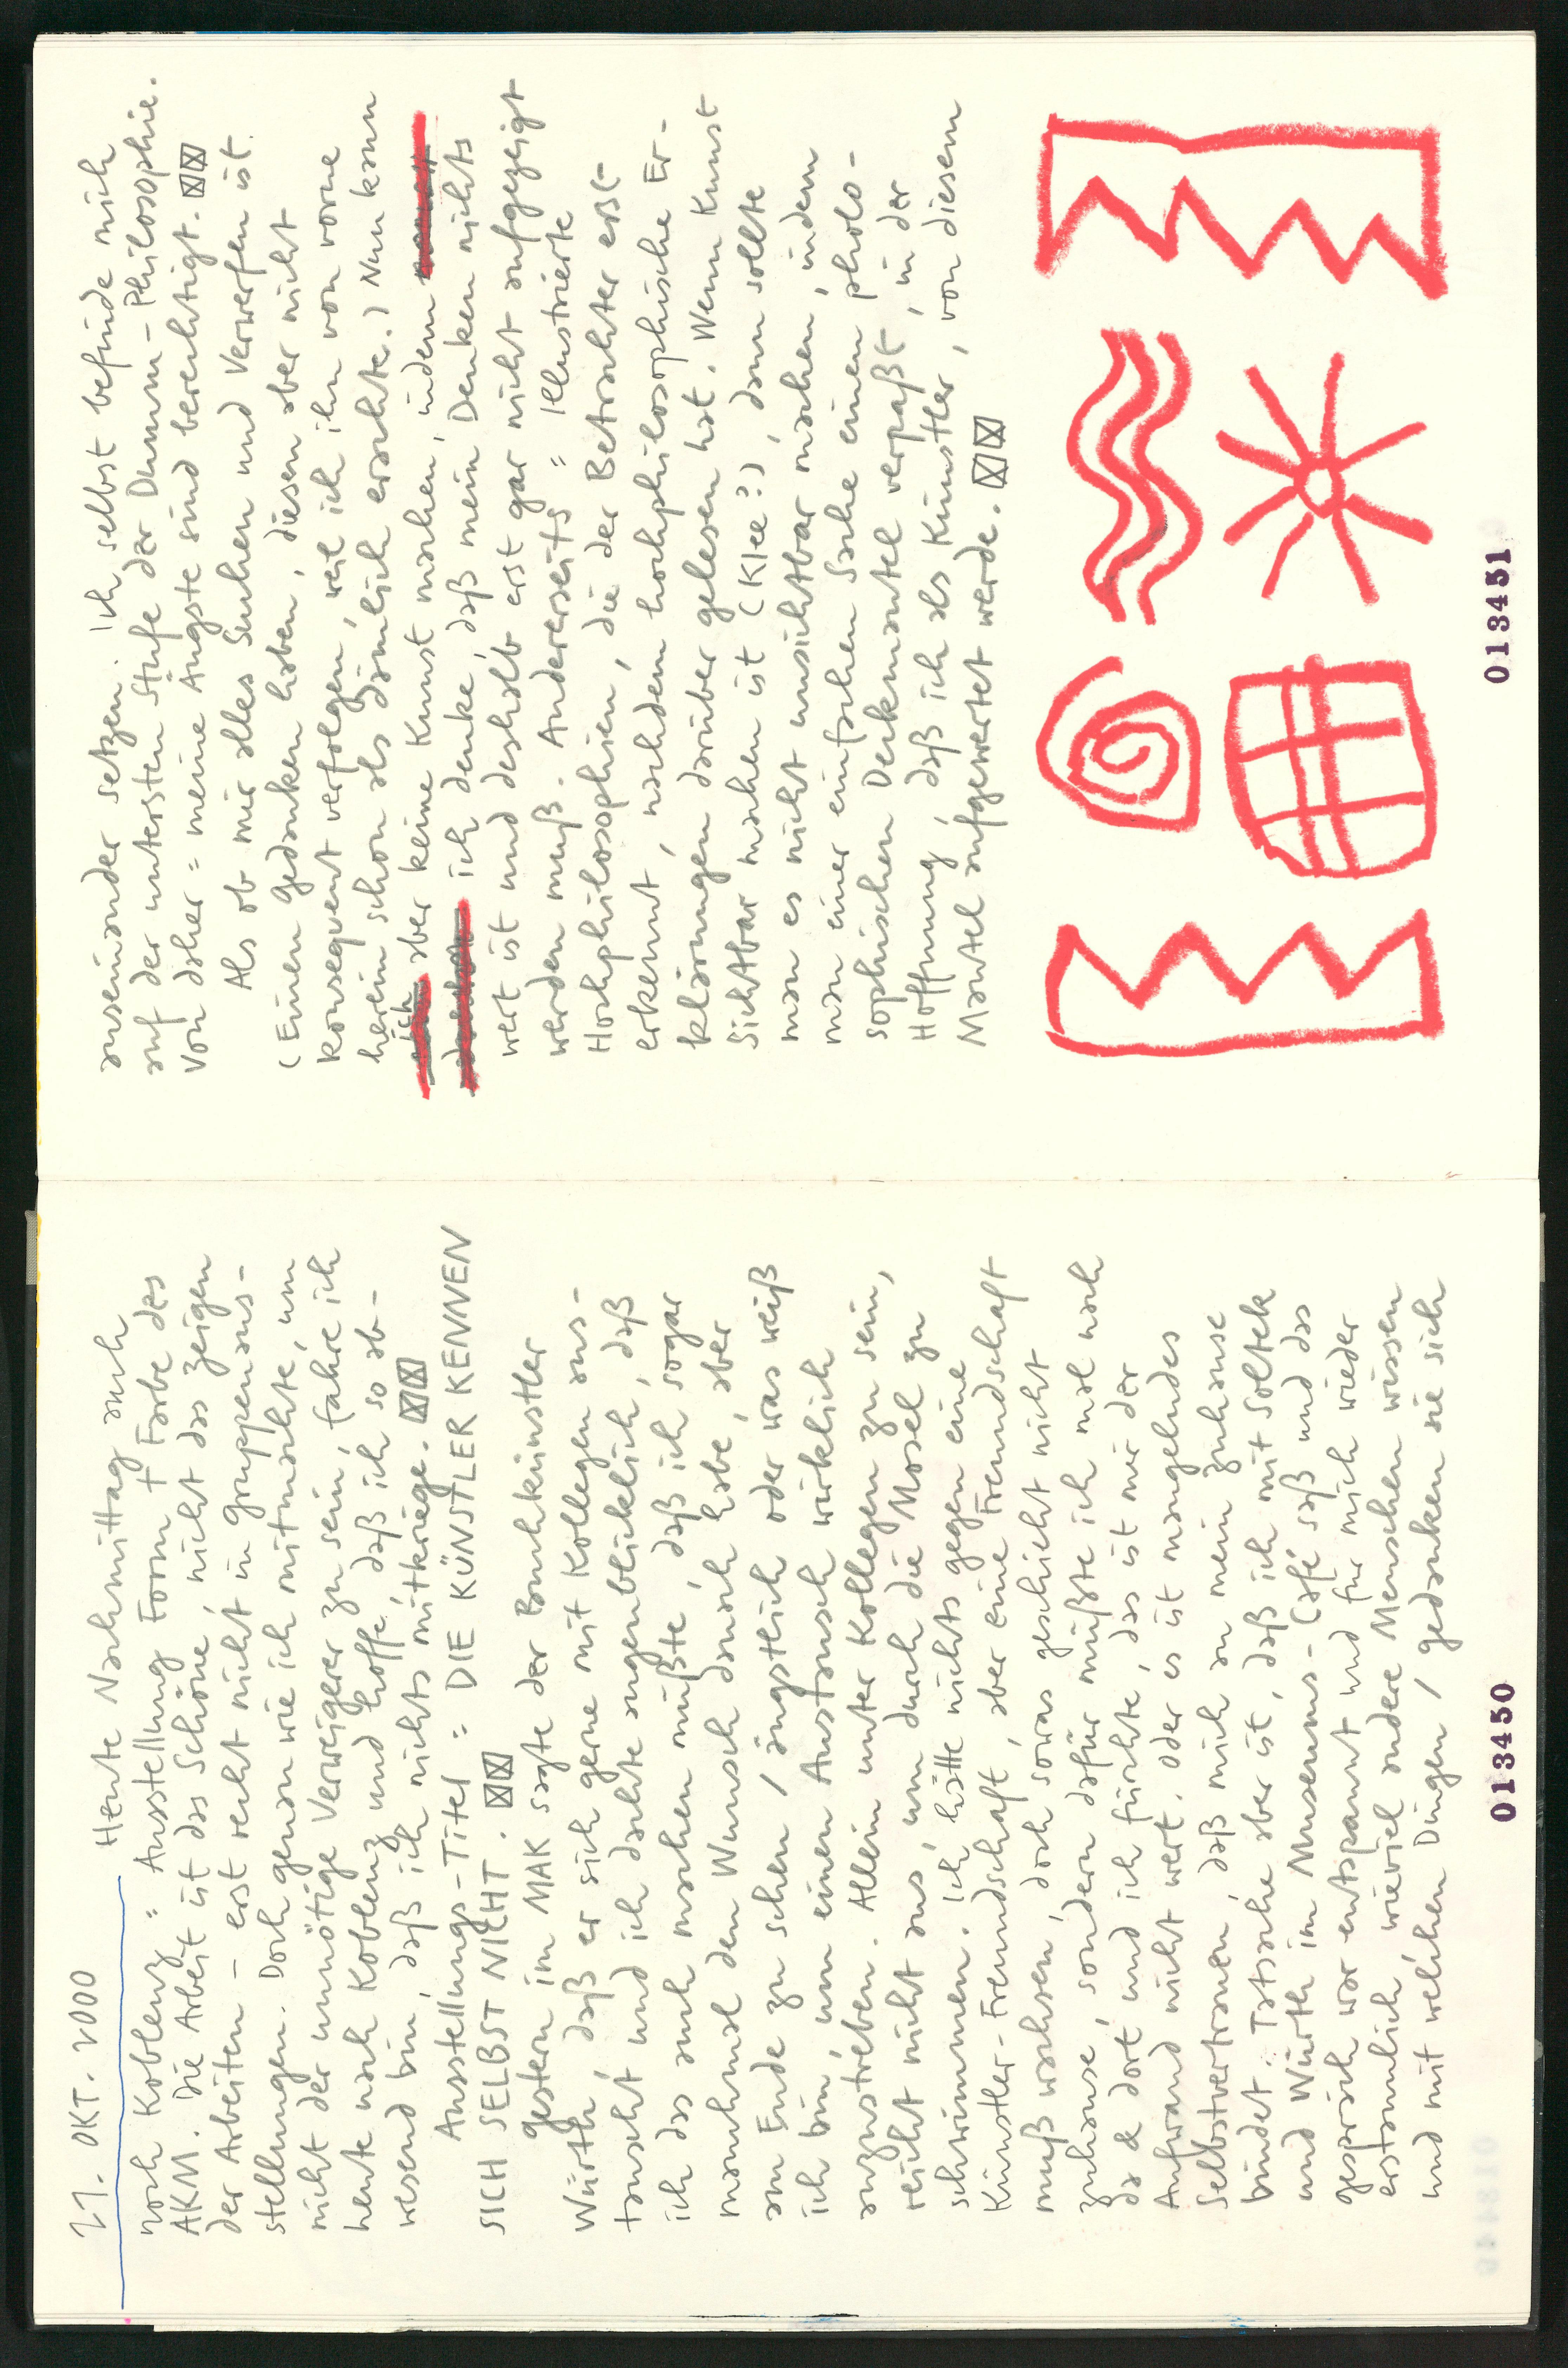 21. OKT. 2000
Heute Nachmittag auch
nach Koblenz = Ausstellung Form + Farbe des
AKM. Die Arbeit ist das Schöne, nicht das Zeigen
der Arbeiten – erst recht nicht in Gruppenaus-
stellungen. Doch genau wie ich mitmachte, um
nicht der unnötige Verweigerer zu sein, fahre ich
heute nach Koblenz und hoffe, daß ich so ab-
wesend bin, daß ich nichts mitkriege. ☒☒
Ausstellungs-Titel = DIE KÜNSTLER KENNEN
SICH SELBST NICHT. ☒☒
gestern im MAK sagte der Bauchkünstler
Würth, daß er sich gerne mit Kollegen aus-
tauscht und ich dachte augenblicklich, daß
ich das auch machen müßte, daß ich sogar
manchmal den Wunsch danach habe, aber
am Ende zu schen / ängstlich oder was weiß
ich bin, um einen Austausch wirklich
anzustreben. Allein unter Kollegen zu sein,
reicht nicht aus, um durch die Mosel zu
schwimmen. Ich hätte nichts gegen eine
Künstler-Freundschaft, aber eine Freundschaft
muß wachsen, doch sowas geschieht nicht
zuhause, sondern dafür müßte ich mal nach
da & dort, und ich fürchte, das ist mir der
Aufwand nicht wert. Oder es ist mangelndes
Selbstvertrauen, daß mich an mein Zuhause
bindet. Tatsache aber ist, daß ich mit Soltek
und Würth im Museums-Café saß und das
gespräch war entspannt und für mich wieder
erstaunlich, wieviel andere Menschen wissen
und mit welchen Dingen / gedanken sie sich
013450
auseinander setzen. Ich selbst befinde mich
auf der untersten Stufe der Dumm-Philosophie.
Von daher = meine Ängste sind berechtigt. ☒☒
Als ob mir alles Suchen und Verwerfen ist.
(Einen gedanken haben, diesen aber nicht
konsequent verfolgen, weil ich ihn von vorne
herein schon als dämlich erachte.) Nun kann
ich aber keine Kunst machen, indem
ich denke, daß mein Denken nichts
wert ist und deshalb erst gar nicht aufgezeigt
werden muß. Andererseits = Illustrierte
Hochphilosophien, die der Betrachter erst
erkennt, nachdem hochphilosophische Er-
klärungen darüber gelesen hat. Wenn Kunst
Sichtbar machen ist (Klee?), dann sollte
man es nicht unsichtbar machen, indem
man einer einfachen Sache einen philo-
sophischen Deckmantel verpaßt, in der
Hoffnung, daß ich als Künstler, von diesem
Mantel aufgewertet werde. ☒☒
013451